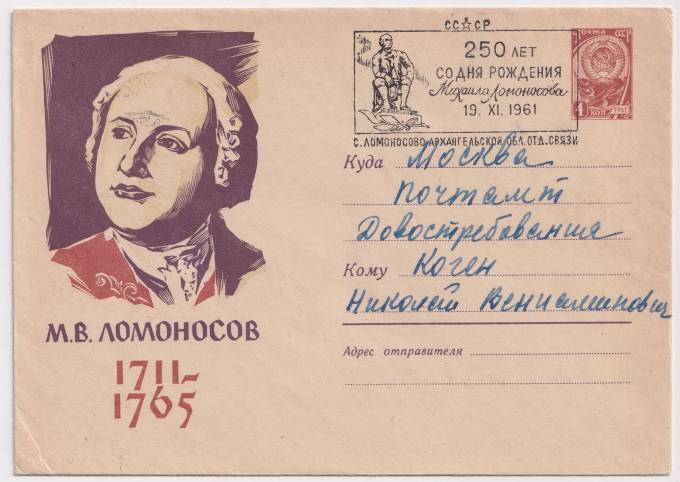 СС☆СР
250 ЛЕТ
СО ДНЯ РОЖДЕНИЯ
Михаила Ломоносова
19. XI. 1961
С. ЛОМОНОСОВО АРХАНГЕЛЬСКОЙ ОБЛ. ОТД. СВЯЗИ
ПОЧТА СССР
4 КОП 1961
Куда Москва
Почтамт
Довостребования
Кому Коген
Николай Вениаминович
Адрес отправителя
М.В. ЛОМОНОСОВ
1711-
1765